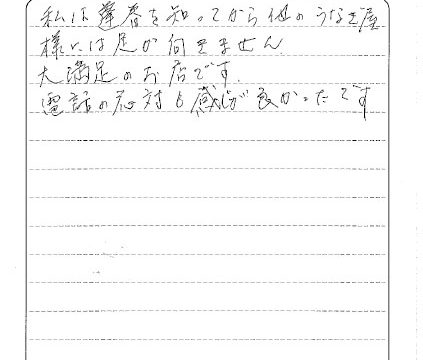 私は蓬春を知ってから他のうなぎ屋
様には足が向きません
大満足のお店です.
電話の応対も感じが良かったです